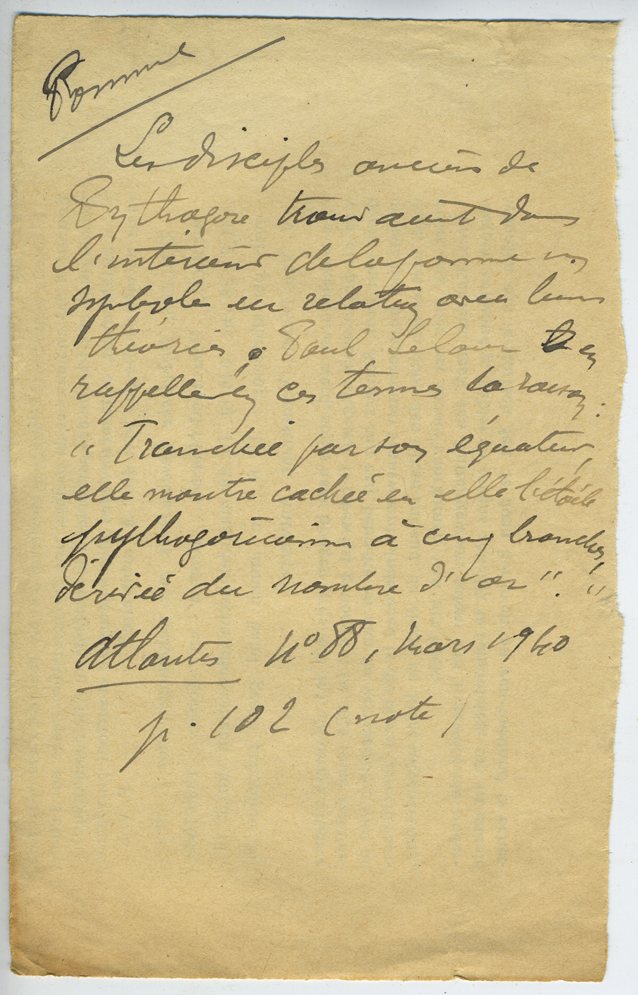 Pomme
Les disciples anciens de
Pythagore trouvaient dans
l'intérieur de la pomme un
symbole en relation avec leurs
théories, Paul Lecour en
rappelle en ces termes la raison :
" Tranchée par son équateur,
elle montre cachée en elle l'étoile
pythagoricienne à cinq branches,
dérivée du nombre d'or". "
Atlantis N° 88, Mars 1940
p. 102 (note)